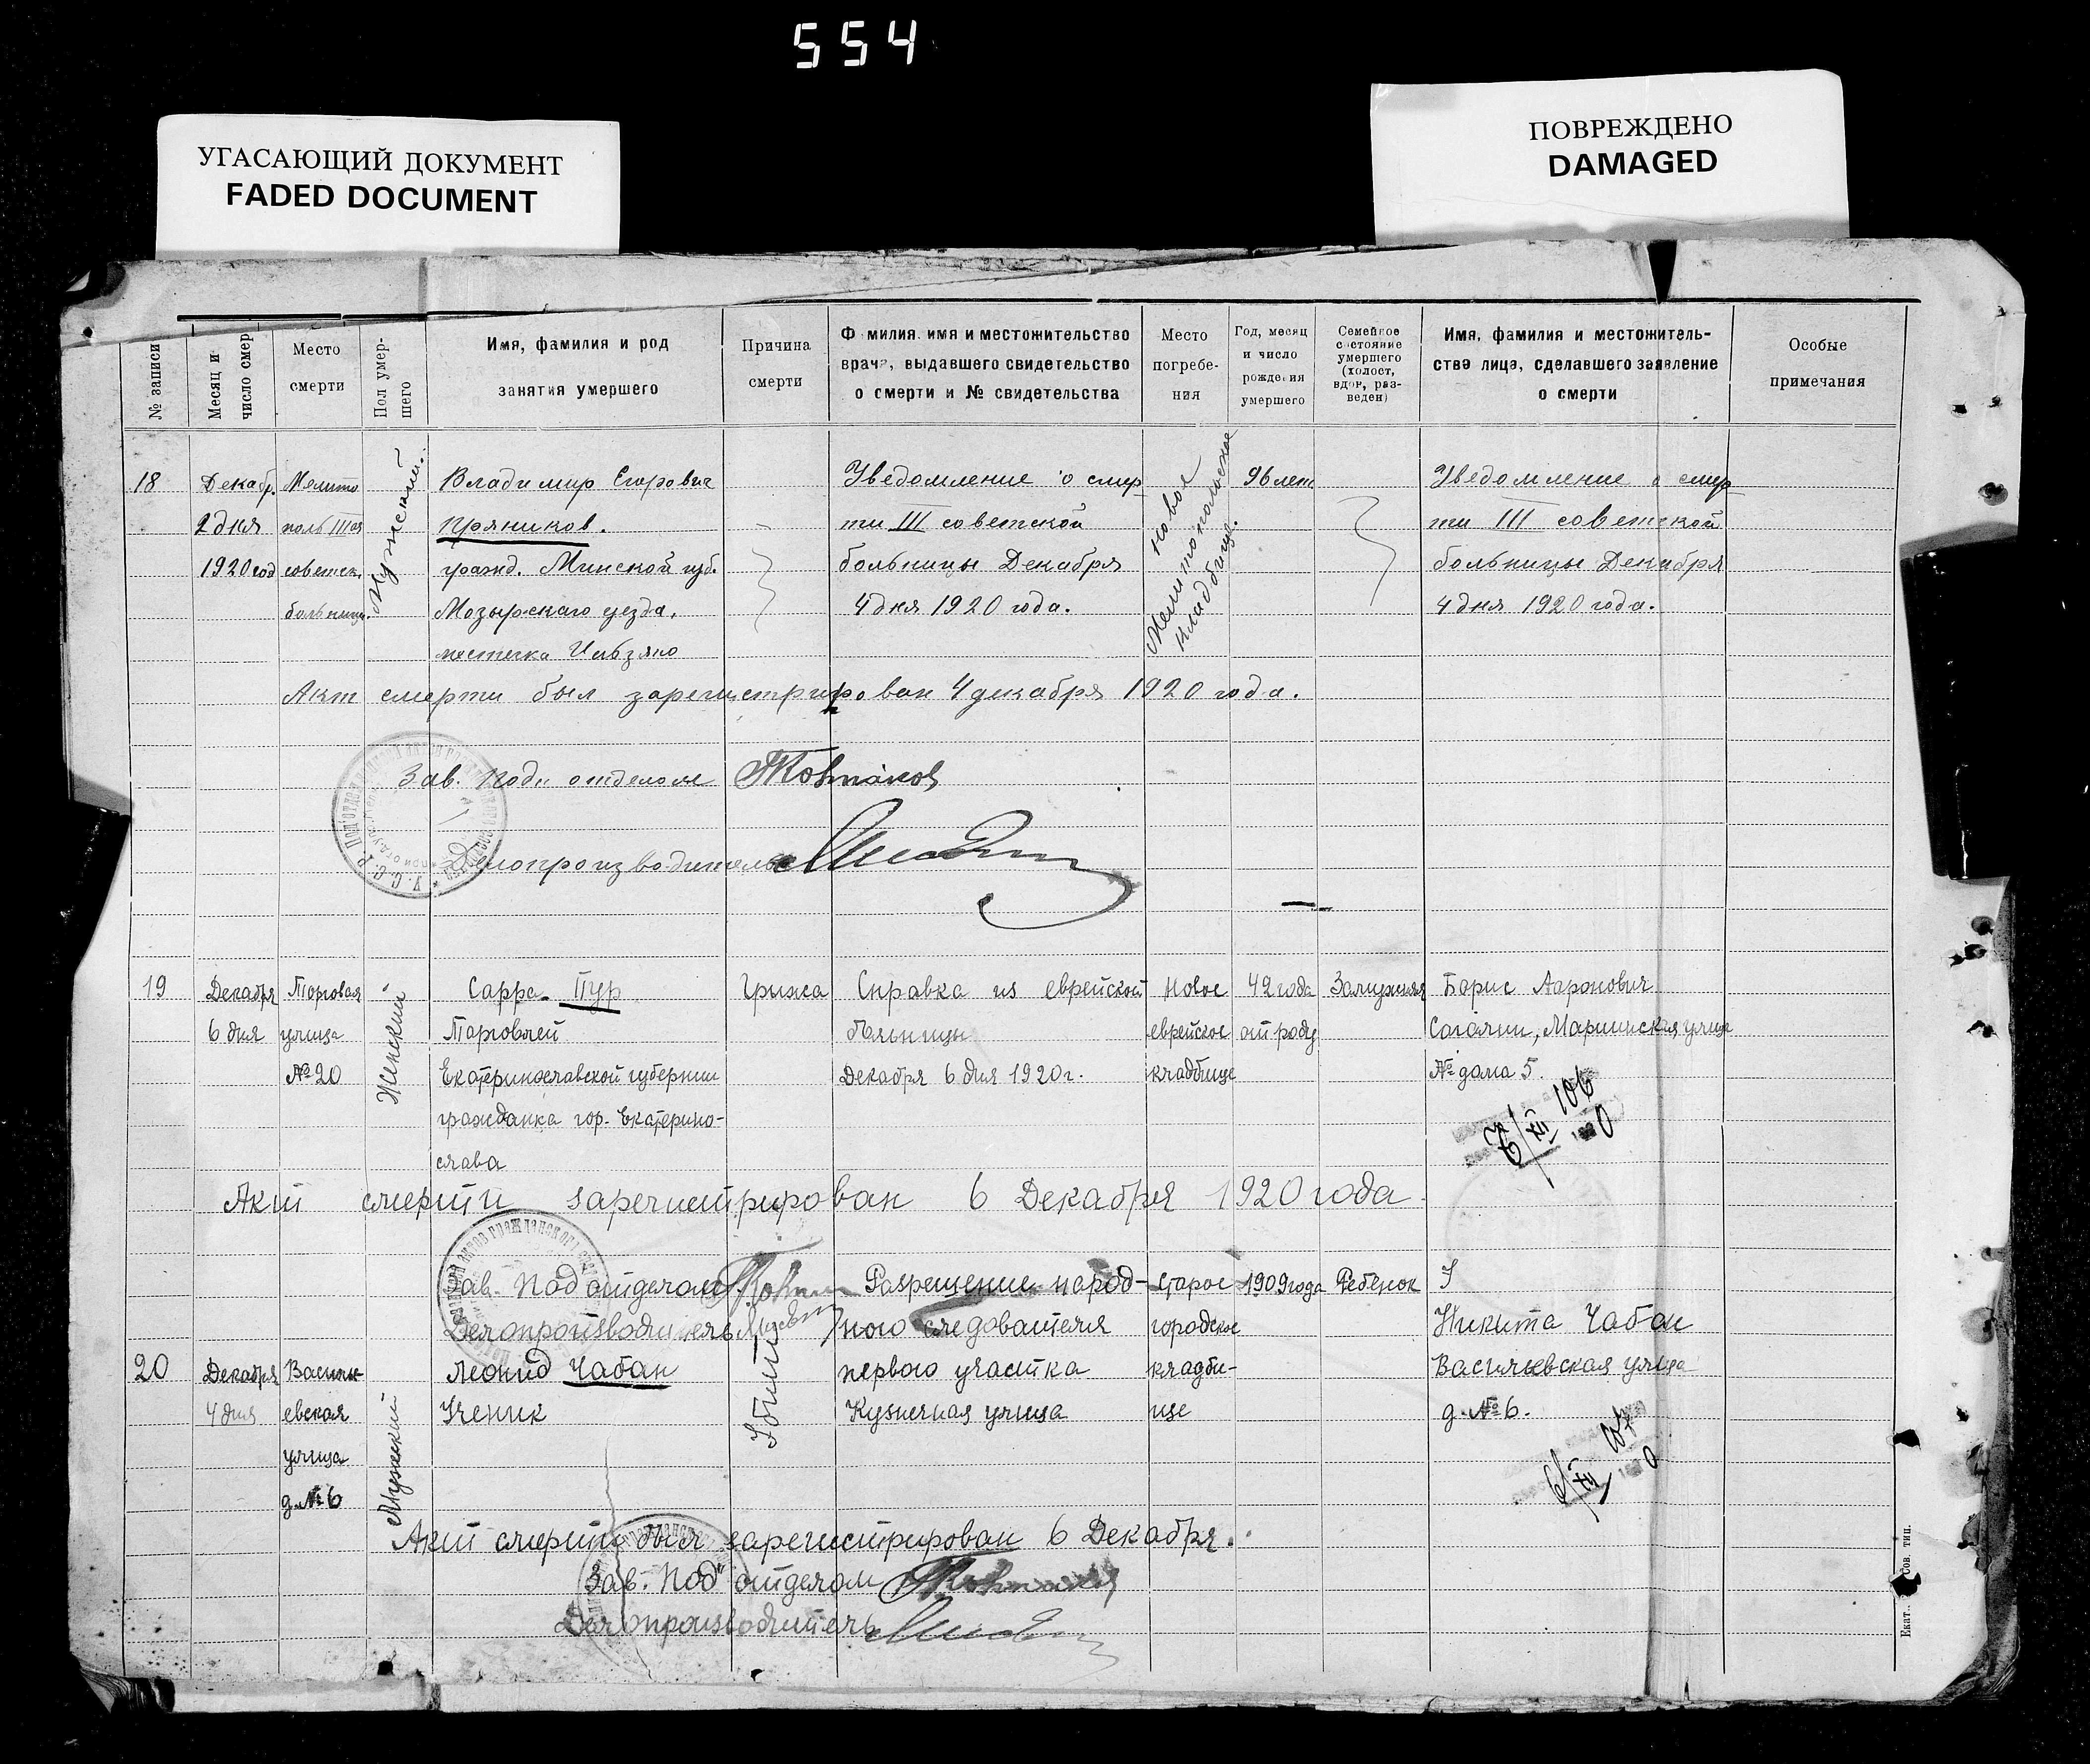 554
УГАСАЮЩИЙ ДОКУМЕНТ
FADED DOCUMENT
ПОВРЕЖДЕНО
DAMAGED
№ записи
Месяц и число смер
Место смерти
Пол умер-шего
Имя, фамилия и род занятия умершего
Причина смерти
Ф милия, имя и местожительство врача, выдавшего свидетельство о смерти и № свидетельства
Место погребе-ния
Год, месяц и число рождения умершего
Семейное состояние умершего (холост, вдов, раз-веден)
Имя, фамилия и местожитель-ства лица, сделавшего заявление о смерти
Особые примечания
18
Декабр.
2 дня
1920 год
Мелито
поль III ая
советск.
больница.
Мужской.
Владимир Егорович
Пряников.
гражд. Минской губ.
Мозырскаго уезда,
местечка
Уведомление о смер
ти III советской
больницы Декабря
4 дня 1920 года.
Новое
Мелитопольское
кладбище.
96 лет
Уведомление о смер
ти III советской
больницы Декабря
4 дня 1920 года.
Акт смерти был зарегистрирован 4 декабря 1920 года.
Зав. Подъ отделом
Делопроизводитель
19
Декабря
6 дня
Торговая
улица
№ 20
Женский
Сарра Пур
Торговлей
Екатеринославской губернии
гражданка гор. Екатерино-
слава
Грыжа
Справка из еврейской
больницы
Декабря 6 дня 1920 г.
Новое
еврейское
кладбище
42 года
от роду
Замужняя
Борис Ааронович
Мариинская улица
№ дома 5.
6/XII 106
1920
Акт смерти зарегистрирован 6 Декабря 1920 года
Зав. Подотделом
Делопроизводитель
20
Декабря
4 дня
Василь
евская
улица
д. № 6
Мужской
Леонид Чабан
Ученик
Убит
Разрешение народ-
ного следователя
первого участка
Кузнечная улица
Старое
городское
кладби-
ще
1909 года
Ребенок
Никита Чабан
Васильевская улица
д. № 6.
6/XII 107
Акт смерти был зарегистрирован 6 Декабря.
Зав. Подъ отделом
Делопроизводитель
Екат.. Сов. тип.